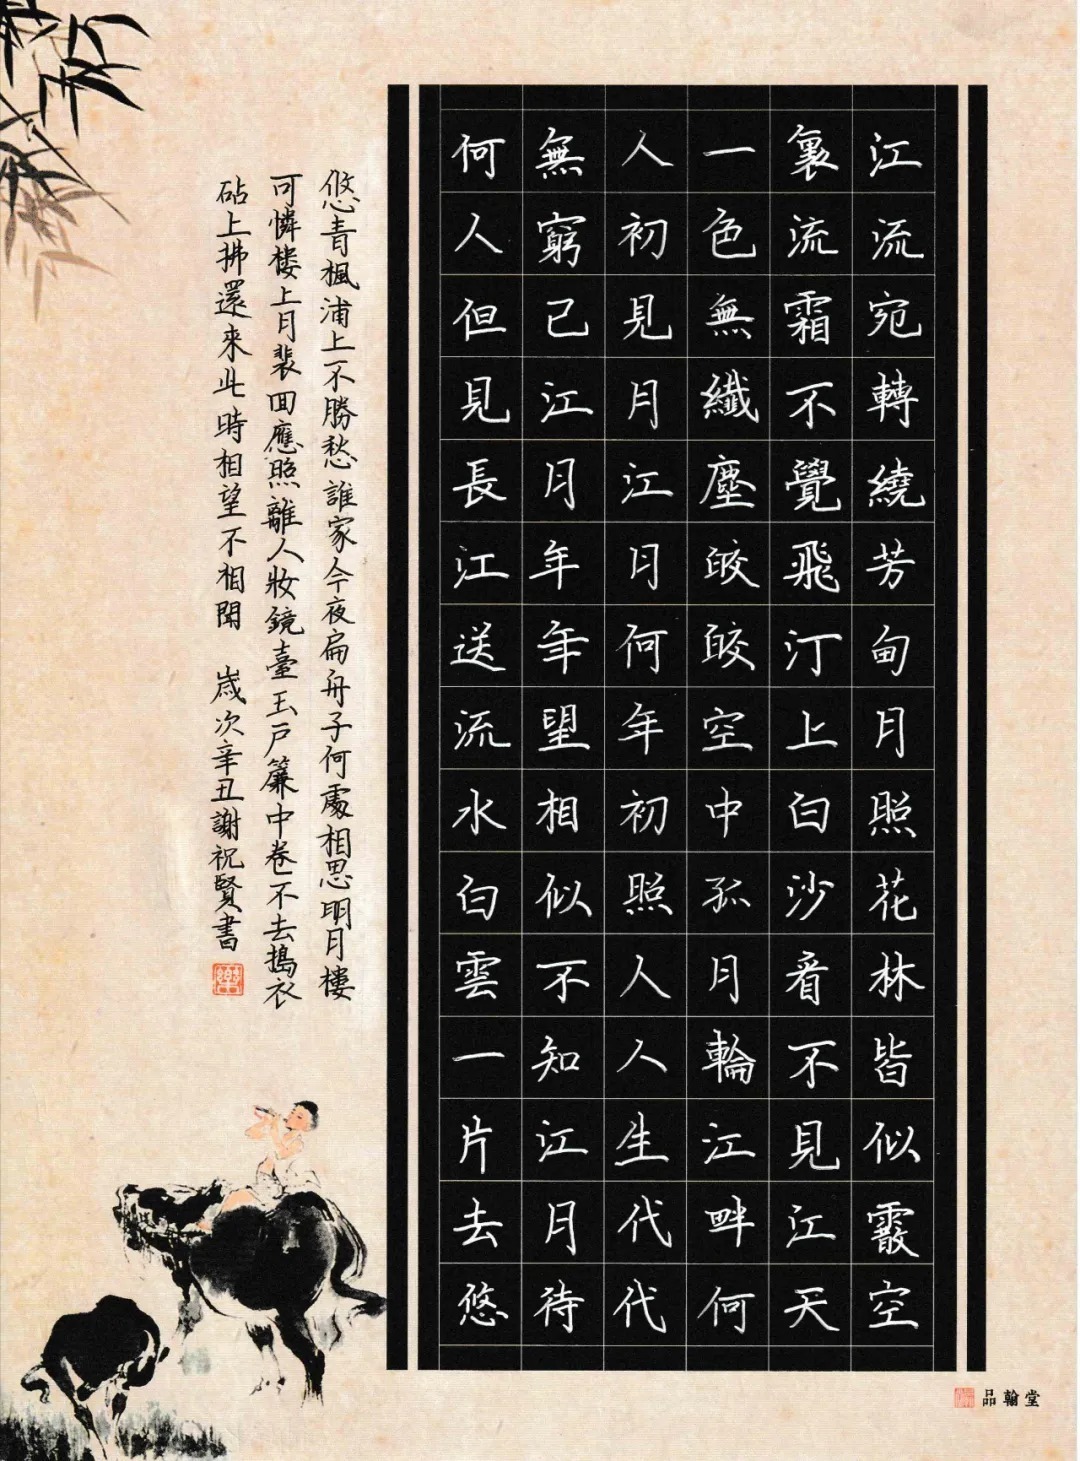 江流宛轉繞芳甸月照花林皆似霰空
裏流霜不覺飛汀上白沙看不見江天
一色無纖塵皎皎空中孤月輪江畔何
人初見月江月何年初照人人生代代
無窮己江月年年望相似不知江月待
何人但見長江送流水白雲一片去悠
悠青楓浦上不勝愁誰家今夜扁舟子何處相思明月樓
可憐楼上月裴回應照離人妝鏡臺玉戶簾中卷不去搗衣
砧上拂還來此時相望不相聞 歲次辛丑謝祝賢書
品翰堂